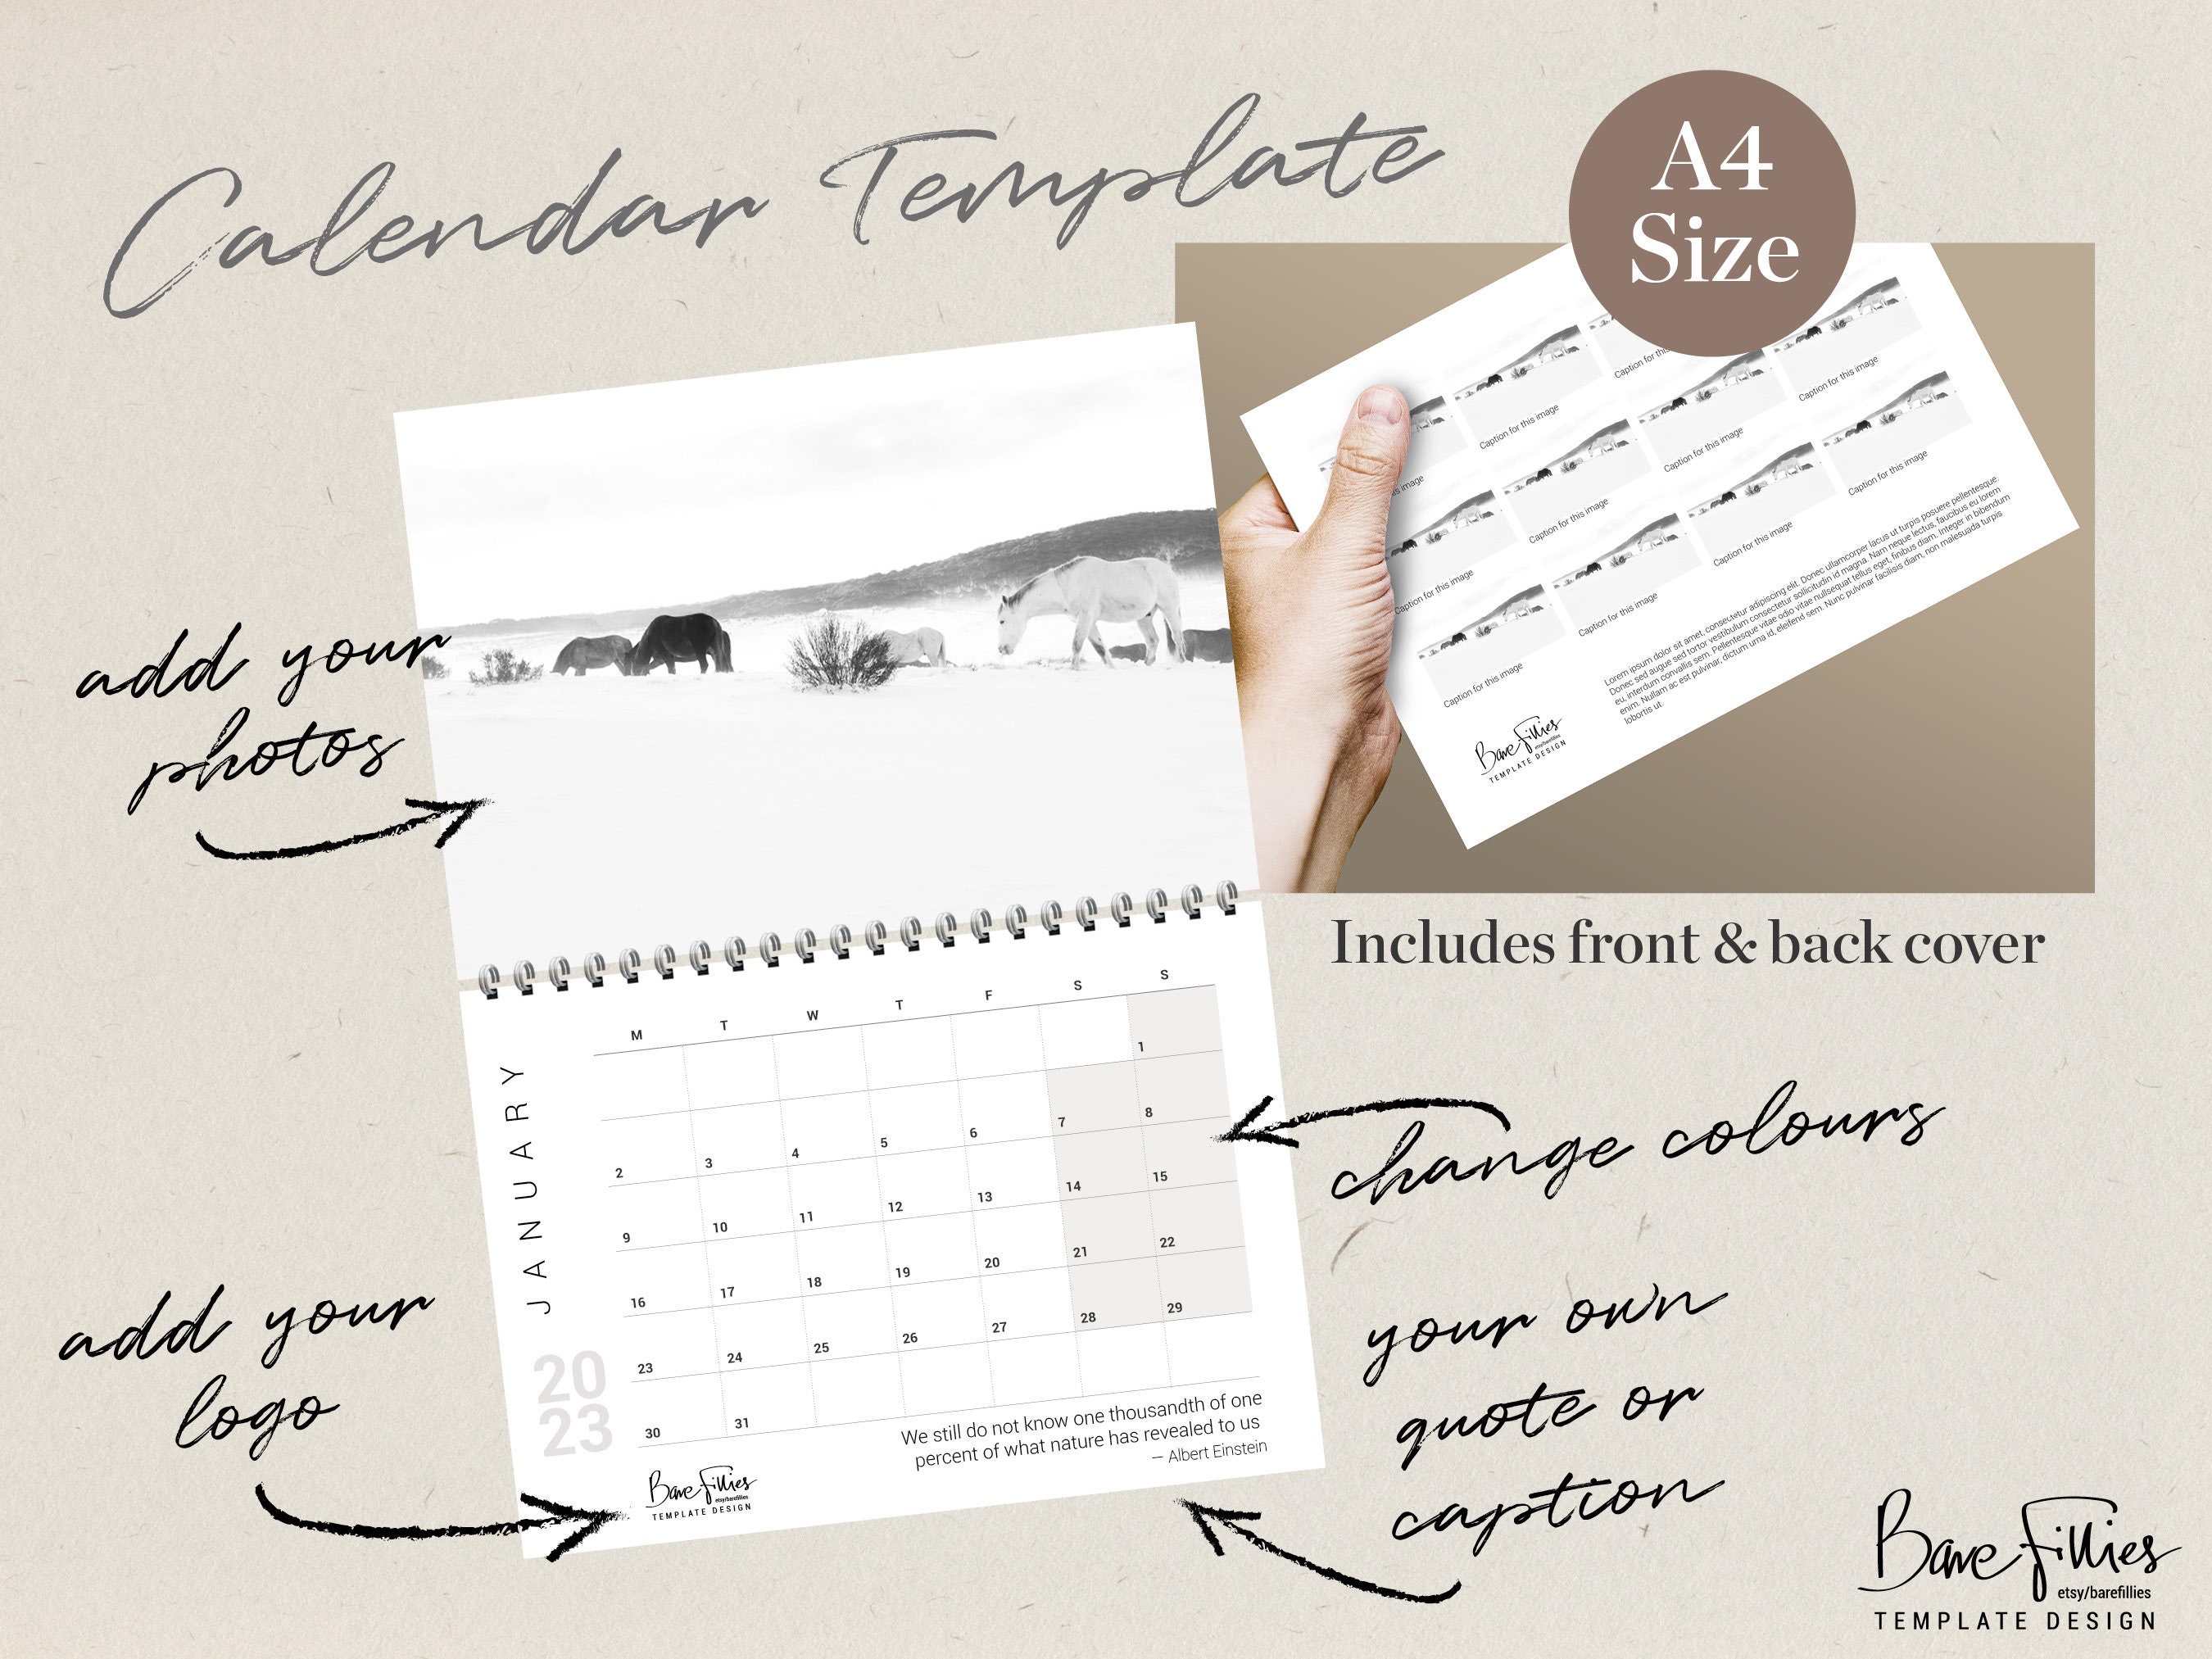 Calendar Template
A4
Size
Caption for this image
Caption for this
Caption for this image
is image
Caption for this image
Caption for this image
Caption for this image
Caption for this image
Caption for this image
Caption for this image
Caption for this image
Caption for this image
Lorem ipsum dolor sit amet, consectetur adipiscing elit. Donec ullamcorper lacus ut turpis posuere pellentesque.
Donec sed augue sed tortor vestibulum consectetur sollicitudin id magna. Nam neque lectus, faucibus eu lorem
eu, interdum convallis sem. Pellentesque vitae odio vitae nullsequat tellus eget, finibus diam. Integer in bibendum
enim. Nullam ac est pulvinar, dictum urna id, eleifend sem. Nunc pulvinar facilisis diam, non malesuada turpis
lobortis ut.
Bare Fillies
etsy/barefillies
TEMPLATE DESIGN
Includes front & back cover
add your
photos
JANUARY
20
23
M T W T F S S
1
2 3 4 5 6 7 8
9 10 11 12 13 14 15
16 17 18 19 20 21 22
23 24 25 26 27 28 29
30 31
We still do not know one thousandth of one
percent of what nature has revealed to us
— Albert Einstein
Bare Fillies
etsy/barefillies
TEMPLATE DESIGN
change colours
add your
logo
your own
quote or
caption
Bare Fillies
etsy/barefillies
TEMPLATE DESIGN